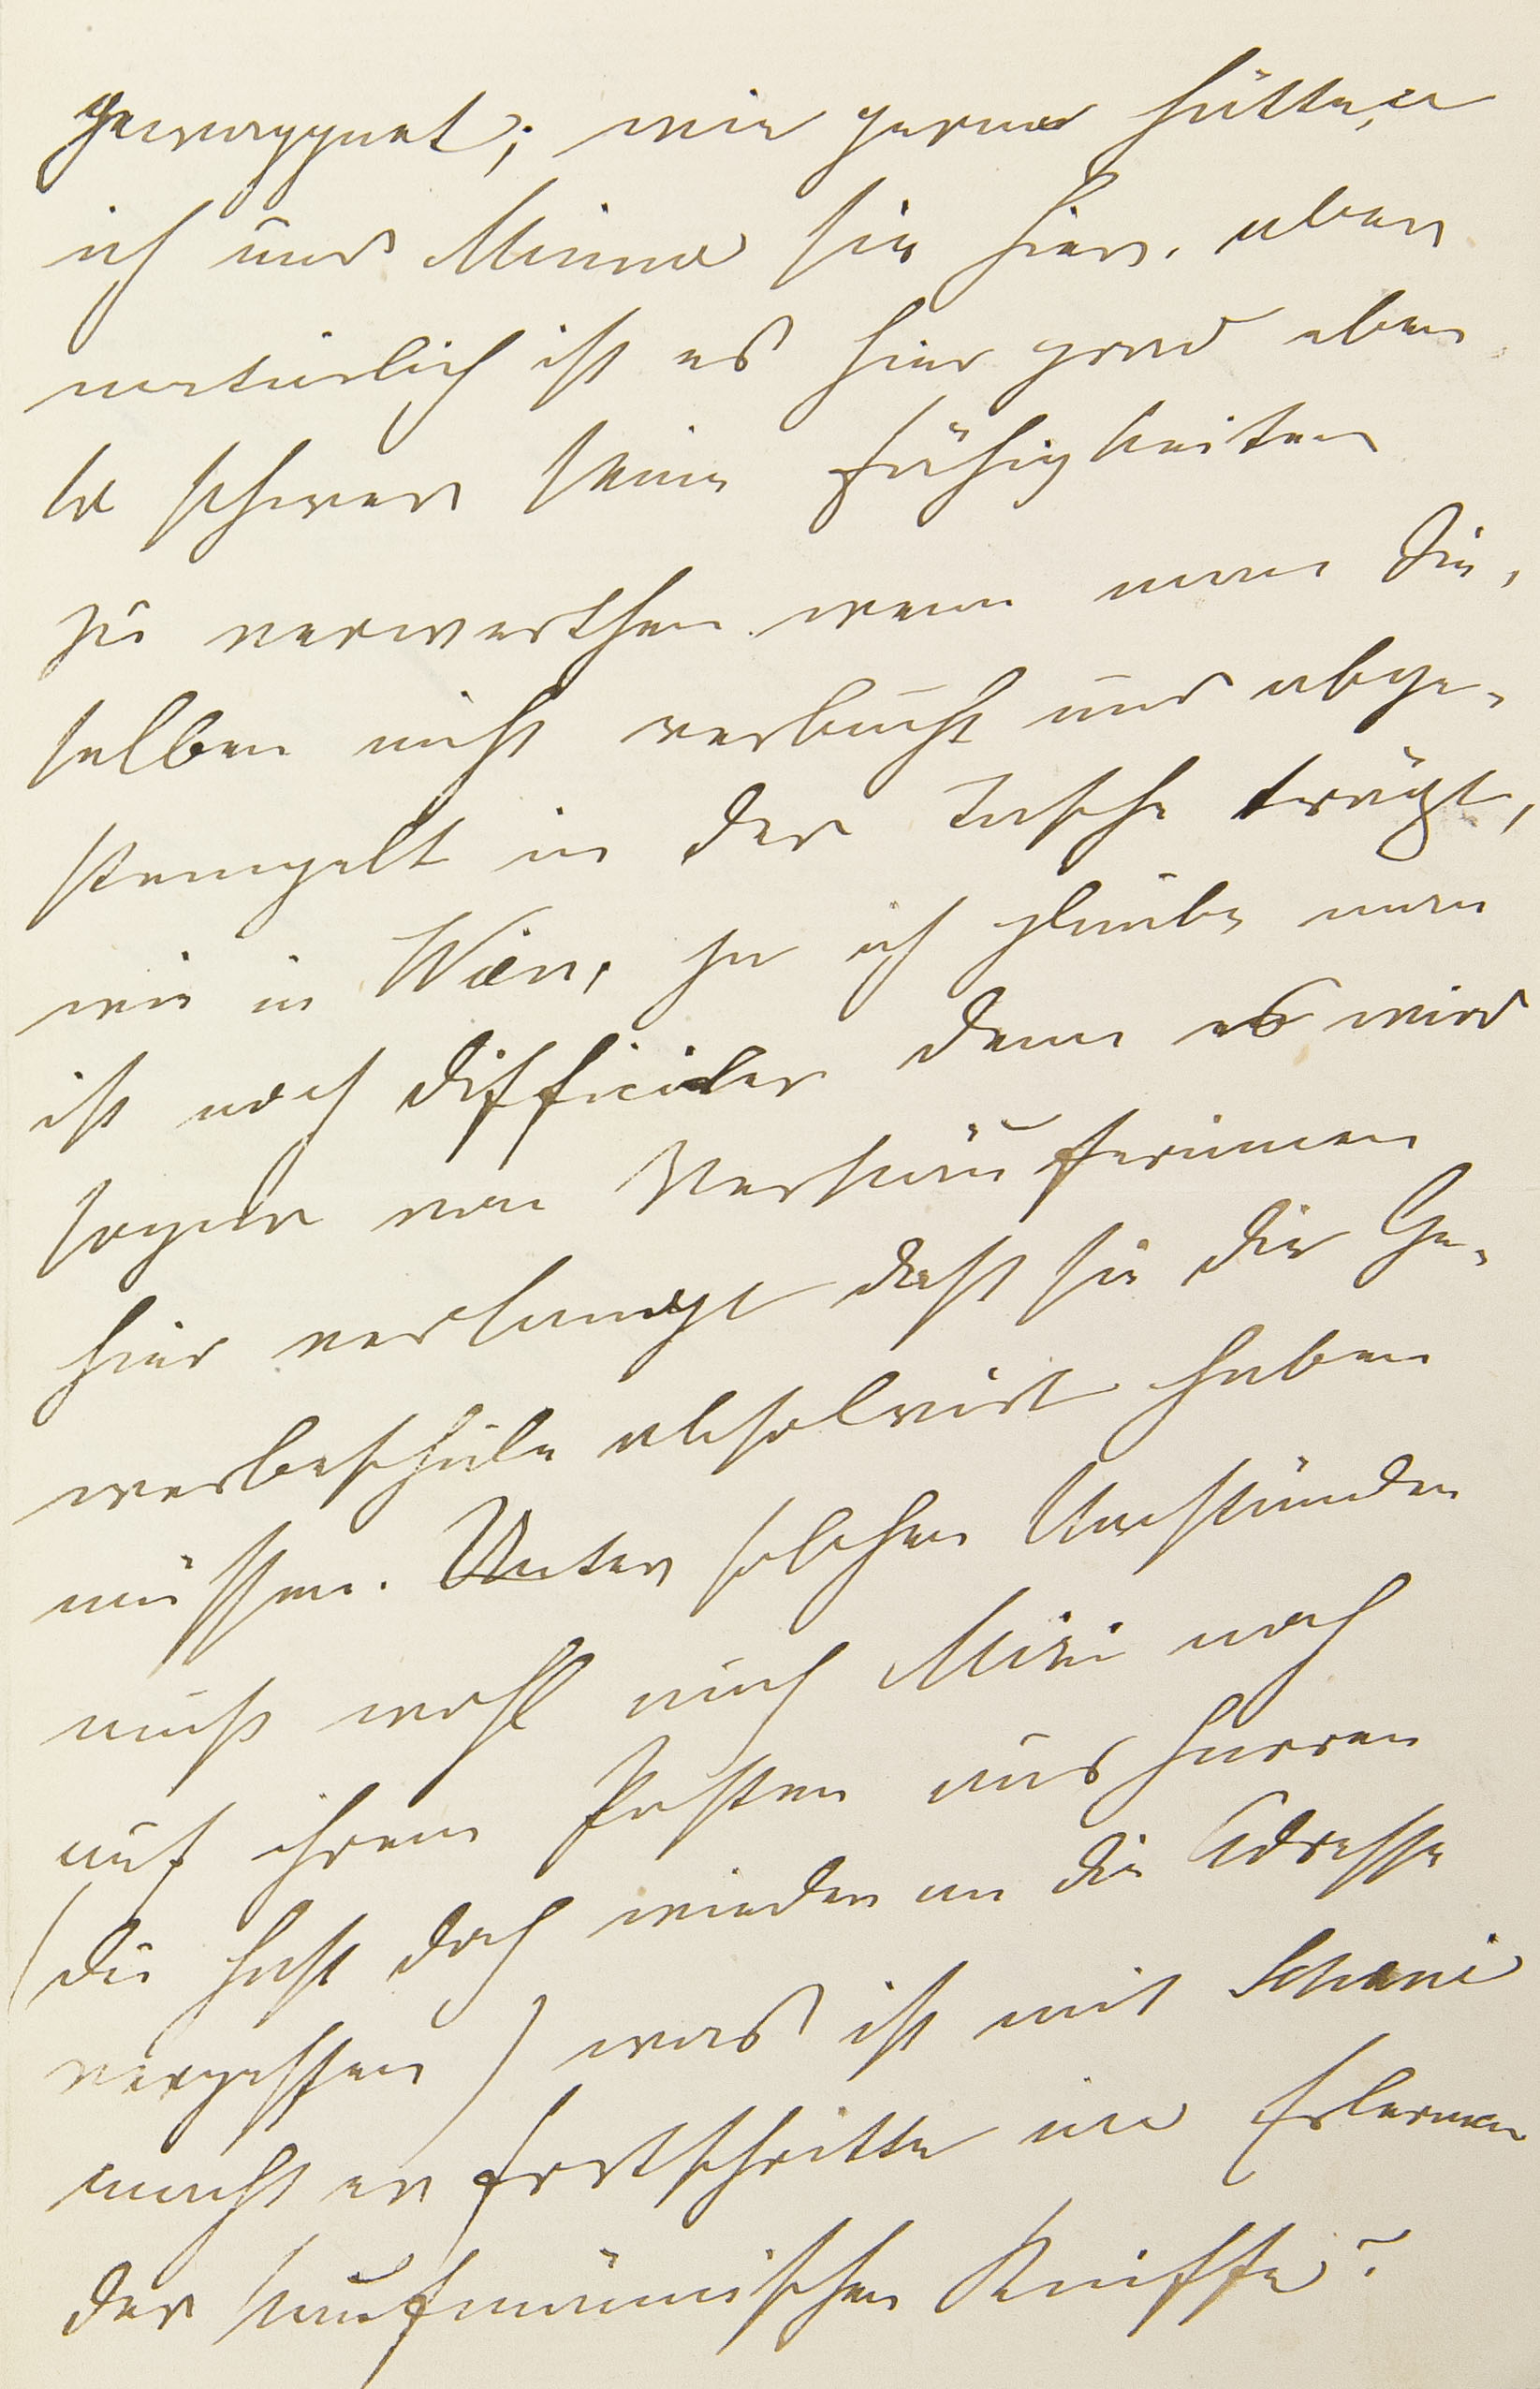 gewappnet; wie gerne hätten
ich und Minna sie hier, aber
natürlich ist es hier grad eben
so schwer seine Fähigkeiten
zu verwerthen wenn man die,
selben nicht verbucht und abge-
stempelt in der Tasche trägt,
wie in Wien, ja ich glaube man
ist noch difficiler denn es wird
sogar von Verkäuferinnen
hier verlangt daß sie die Ge-
werbeschule absolvirt haben
müssen. Unter solchen Umständen
muß wohl auch Mizi noch
auf ihrem Posten ausharren
(du hast doch wieder an die Adresse
vergessen) was ist mit Schani
macht er Fortschritte im Erlernen
der kaufmännischen Kniffe?